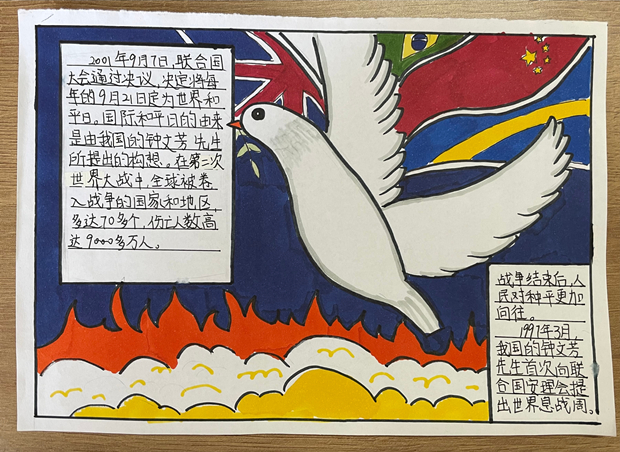 2001年9月7日,联合国
大会通过决议,决定将每
年的9月21日定为世界和
平日。国际和平日的由来
是由我国的钟文芳先生
所提出的构想。在第二次
世界大战中,全球被卷
入战争的国家和地区,
多达70多个,伤亡人数高
达9000多万人。
战争结束后,人
民对和平更加
向往。
1997年3月
我国的钟文芳
先生首次向联
合国安理会提
出世界息战周。